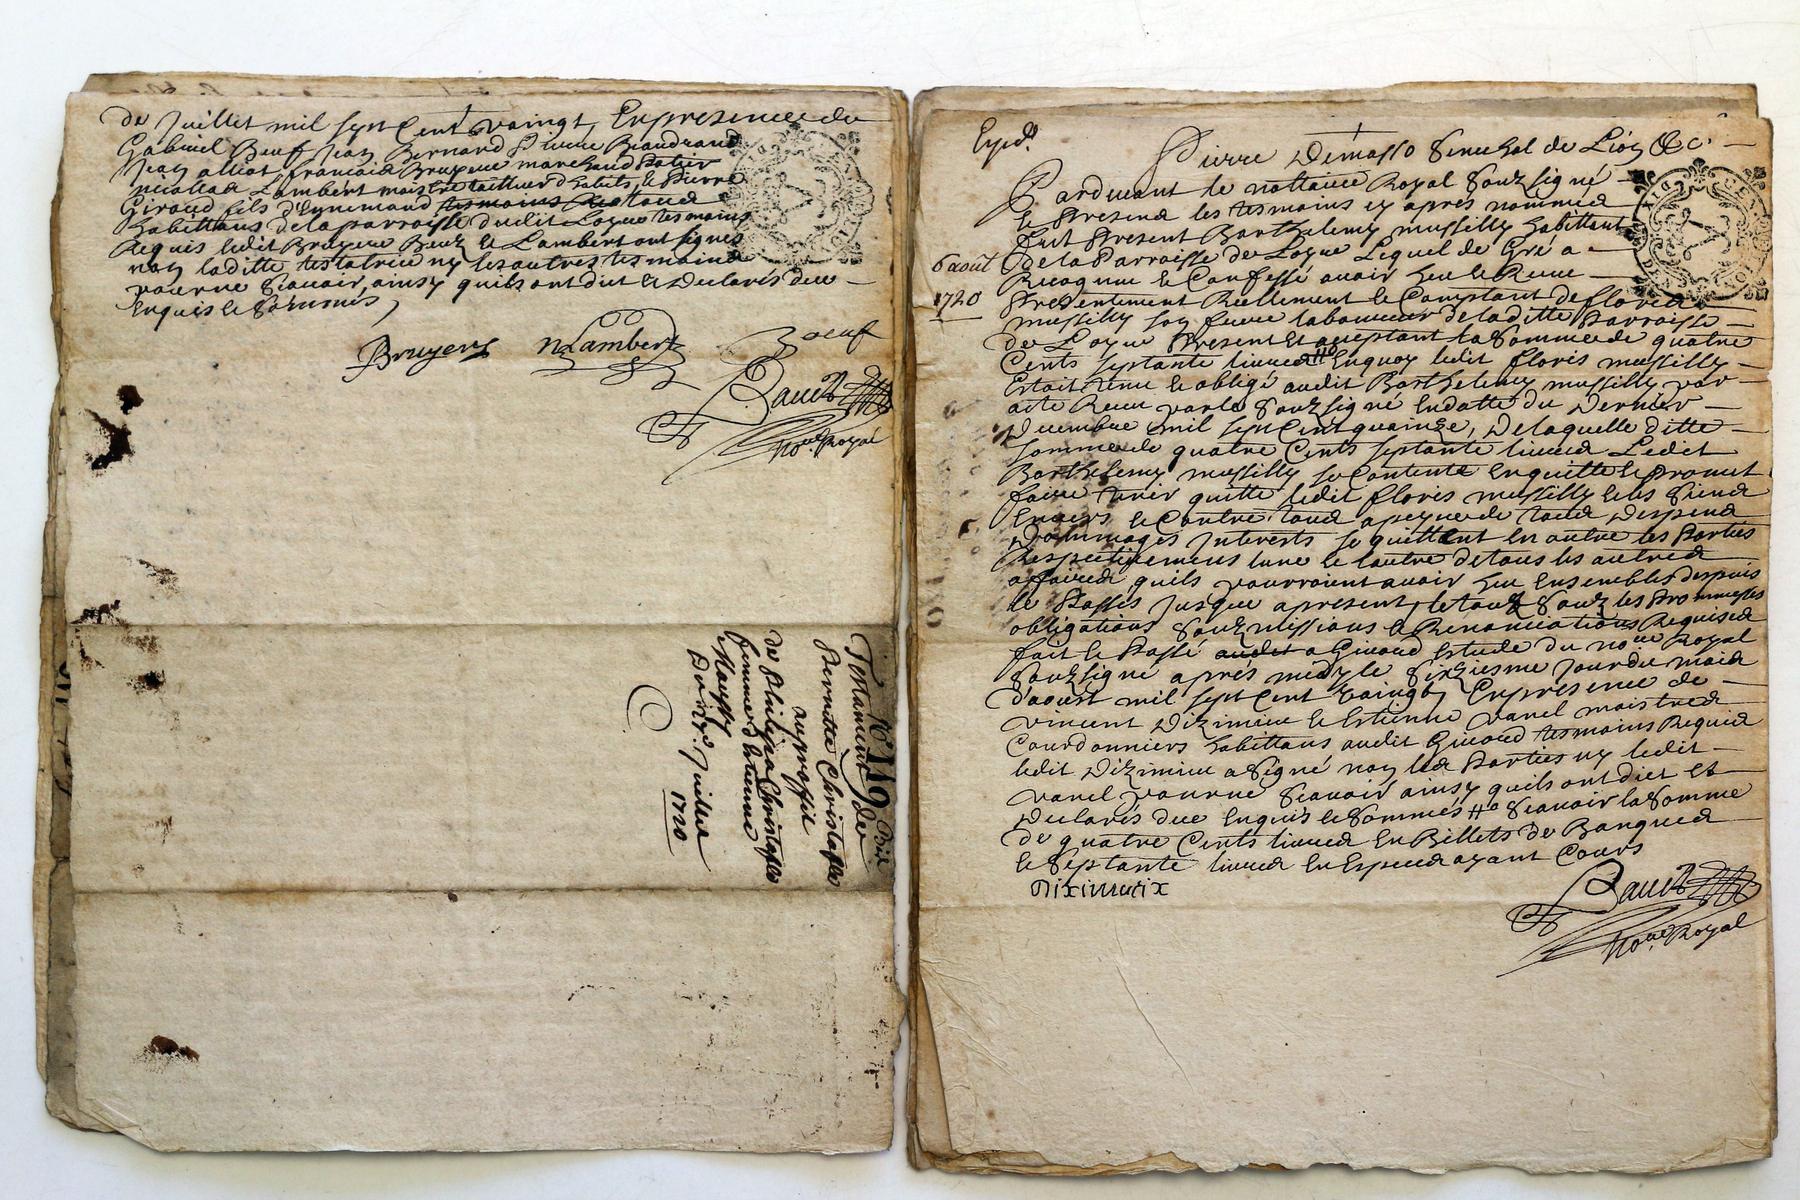 de Juillet mil sept Cent vaingt, En presence de
Gabriel Beuf Jean Bernard Pierre Beaudrand
Jean alliot, francois Bruyere marchand
nicollas Lambert maistre tailleur d'habits, & Pierre
Giroud fils d'Eynemond
habittans de la parroisse dudit Loyre tesmoins
Requis ledit Bruyere Beuf & Lambert ont signés
non laditte testatrice ny les autres tesmoins
pour ne scavoir, ainsy quils ont dit & Declarés de ce
Enquis & sommés,
Bruyere
nLambert
Boeuf
Royal
119
Testament de
Pernette Christophle
au proffit
de Philipa Christophle
femme d'Estienne
Du Juillet
1720
Exped.
Pierre Demasso Senechal de Lion &c.
Pardevant le nottaire Royal Soubsigné
& Presens les tesmoins cy apres nommés
fut Present Barthelemy mussilly habittant
de la Parroisse de Loyre Lequel de Gré a
6 août
1720
Recognu & Confessé avoir heu & Receu
Presentement Reellement & Comptant de floris
mussilly son frere laboureur de laditte Parroisse
de Loyre Present Et acceptant la Somme de quatre
Cents septante livres Enquoy ledit floris mussilly
Estoit tenu & obligé audit Barthelemy mussilly par
acte Receu par le Soubsigné En datte du Dernier
Decembre mil sept Cent quainze, De laquelle ditte
Somme de quatre Cents septante livres Ledit
Barthelemy mussilly se Contente En quitte & Promet
faire tenir quitte ledit floris mussilly & les Siens
Envers & Contre tous a peyne de tous Despens
Dommages Interests se quittent En outre les Parties
Respectivement lune & lautre de tous les autres
affaires quils pourroient avoir heu Ensembles despuis
le Passés Jusques apresent, le tout Soubz les Prommesses
obligations Soubzmissions & Renonciations Requises
fait & Passé audit a Givord Estude du no.re Royal
Soubsigné aprés midy le Sixziesme Jour du mois
D'aoust mil sept Cent vaingt, En presence de
vincent Dizimieu & Estienne vanel maistres
Courdonniers habittans audit Givord tesmoins Requis
ledit Dizimieu a Signé non les Parties ny ledit
vanel pour ne Scavoir ainsy quils ont dict et
Declarés de ce Enquis & Sommés Scavoir la Somme
de quatre Cents livres En Billets de Banques
& Septante livres En Especes ayant Cours
no.re Royal